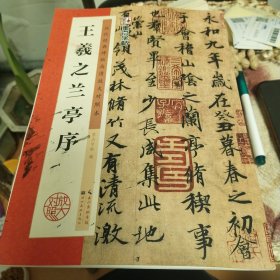 永和九年歲在癸丑暮春之初會
于會稽山陰之蘭亭脩稧事
也羣賢畢至少長咸集此地
領茂林脩竹又有清流激
王羲之兰亭序